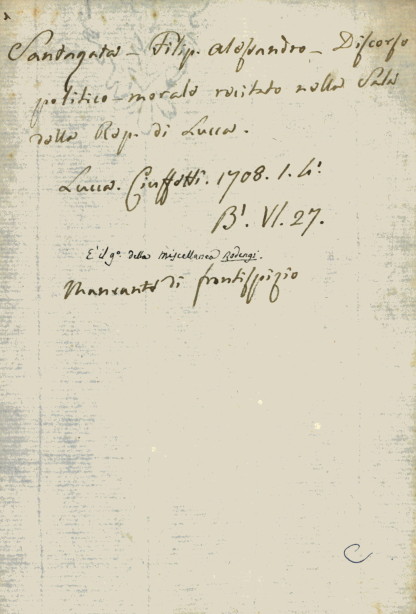 Santagata - Filip. Alessandro - Discorso
politico-morale recitato nella Sala
della Rep. di Lucca.
Lucca. Ciuffetti. 1708. 1. 4°.
B¹. VI. 27.
È il 9°. della miscellanea
Mancante di frontispizio